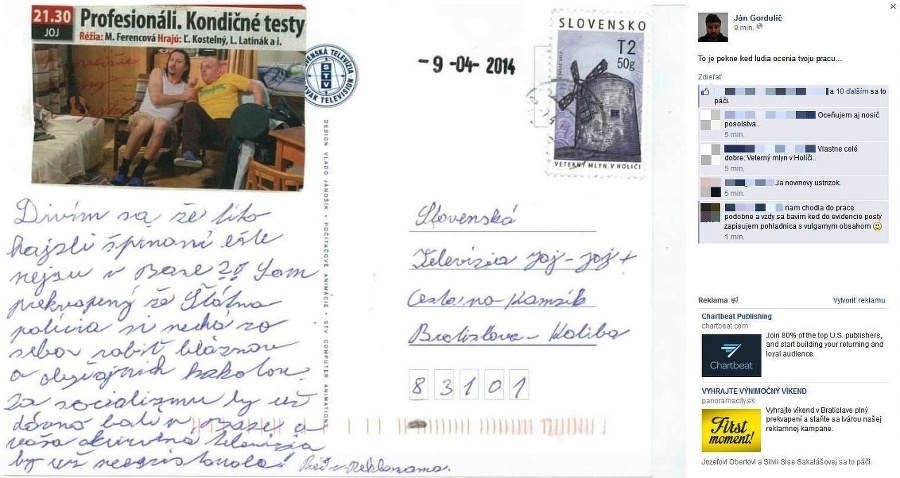 21.30
JOJ
Profesionáli. Kondičné testy
Réžia: M. Ferencová Hrajú: Ľ. Kostelný, L. Latinák a i.
STV
-9-04-2014
SLOVENSKO
T2
50g
VETERNÝ MLYN V HOLÍČI
DESIGN VLADO JANOŠÍK • POČÍTAČOVÉ ANIMÁCIE • STV COMPUTER ANIMATIONS
Divím sa že títo
hajzli špinaví ešte
nejsu v Base ?! Som
prekvapený že Štátna
polícia si nechá zo
sebou robiť bláznou
a obyčajných
Za socializmu by už
dávno boli v base a
vaša televízia
by už neexistovala!
Slovenská
Televízia Joj-Joj+
Cesta na Kamzík
Bratislava-Koliba
83101
Ján Gordulič
9 min.
To je pekne ked ludia ocenia tvoju pracu...
Zdieľať
a 10 ďalším sa to
páči.
Oceňujem aj nosič
posolstva..
5 min.
Vlastne celé
dobre: Veterný mlyn v Holíči..
5 min.
Ja novinovy ustrizok.
5 min.
nam chodia do prace
podobne a vzdy sa bavim ked do evidencie posty
zapisujem pohladnica s vulgarnym obsahom
1 min.
Reklama
Vytvoriť reklamu
Chartbeat Publishing
chartbeat.com
Chartbeat
Join 80% of the top U.S. publishers,
and start building your returning and
loyal audience.
VYHRAJTE VÝNIMOČNÝ VÍKEND
panoramacity.sk
First
moment!
Vyhrajte víkend v Bratislave plný
prekvapení a staňte sa tvárou našej
reklamnej kampane.
Jozefovi Obertovi a Silvii Sise Sakalášovej sa to páči.